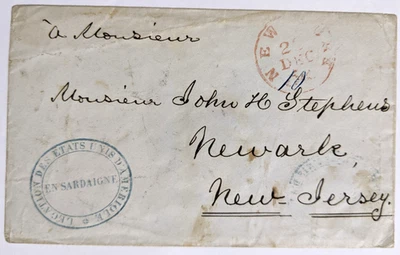 à Monsieur
NEW
2
DEC
10
Monsieur John H Stephens
Newark
New Jersey.
LEGATION DES ETATS UNIS D'AMERIQUE
EN SARDAIGNE